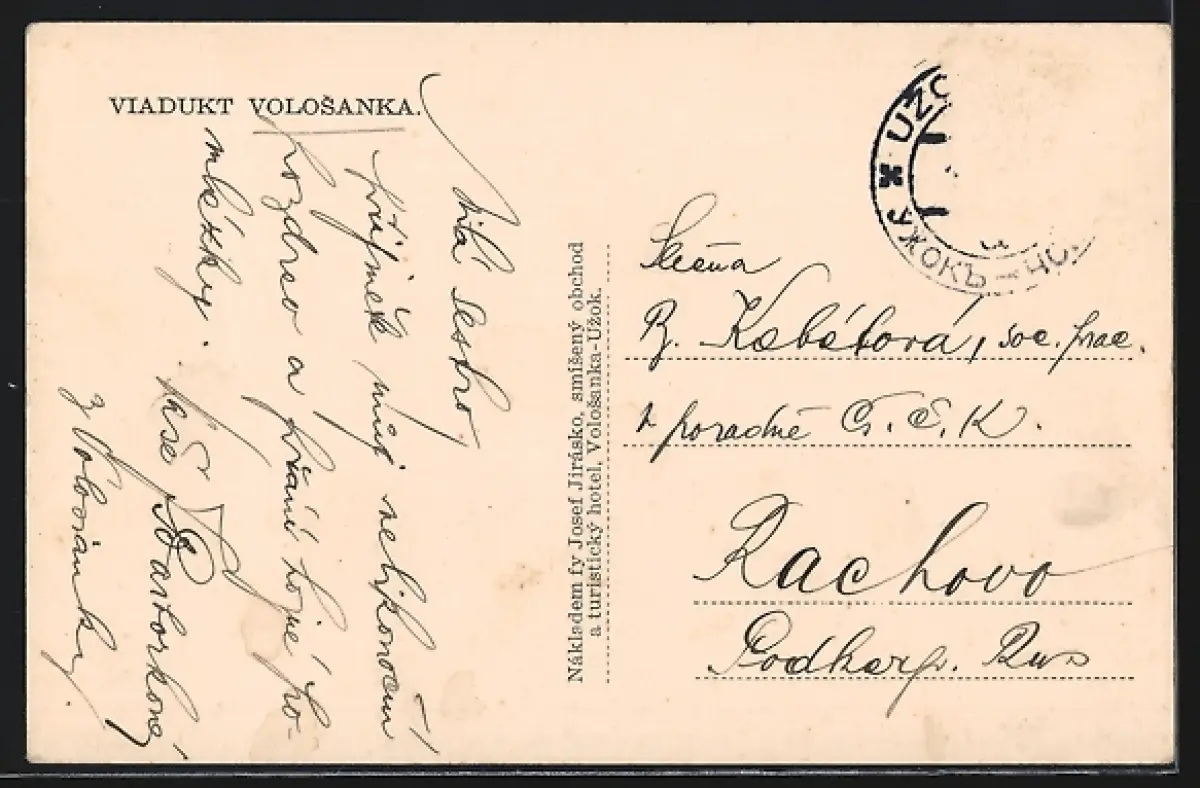 VIADUKT VOLOŠANKA.
Milá sestro,
přijměte můj velikonoční
pozdrav a přání hojné po-
mlázky.
Vaše Pastorková
z Vološanky
Nákladem fy Josef Jirásko, smíšený obchod
a turistický hotel, Vološanka-Užok.
UŽO
УЖОКЪ — ЧС
Slečna
Kabátová, soc. prac.
v poradně Č. Č. K.
Rachovo
Podkarp. Rus